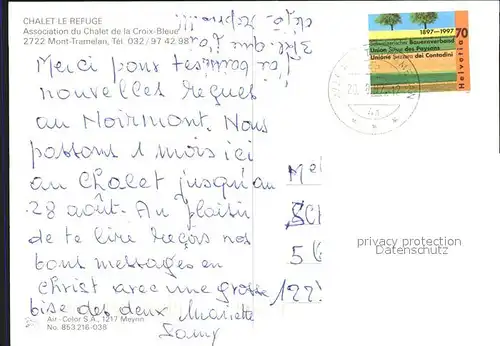 CHALET LE REFUGE
Association du Chalet de la Croix-Bleue
2722 Mont-Tramelan, Tél. 032 / 97 42 98
1897–1997
70
Schweizerischer Bauernverband
Union Suisse des Paysans
Unione Svizzera dei Contadini
Helvetia
Merci pour tes
nouvelles reçues
au Noirmont. Nous
passons 1 mois ici
au Chalet jusqu'au
28 août. Au plaisir
de te lire reçois nos
bons messages en
Christ avec une grosse
bise des deux Mariette
Samy
Me
SC
5
122
privacy protection
Datenschutz
Air-Color S.A., 1217 Meyrin
No. 853 216-038